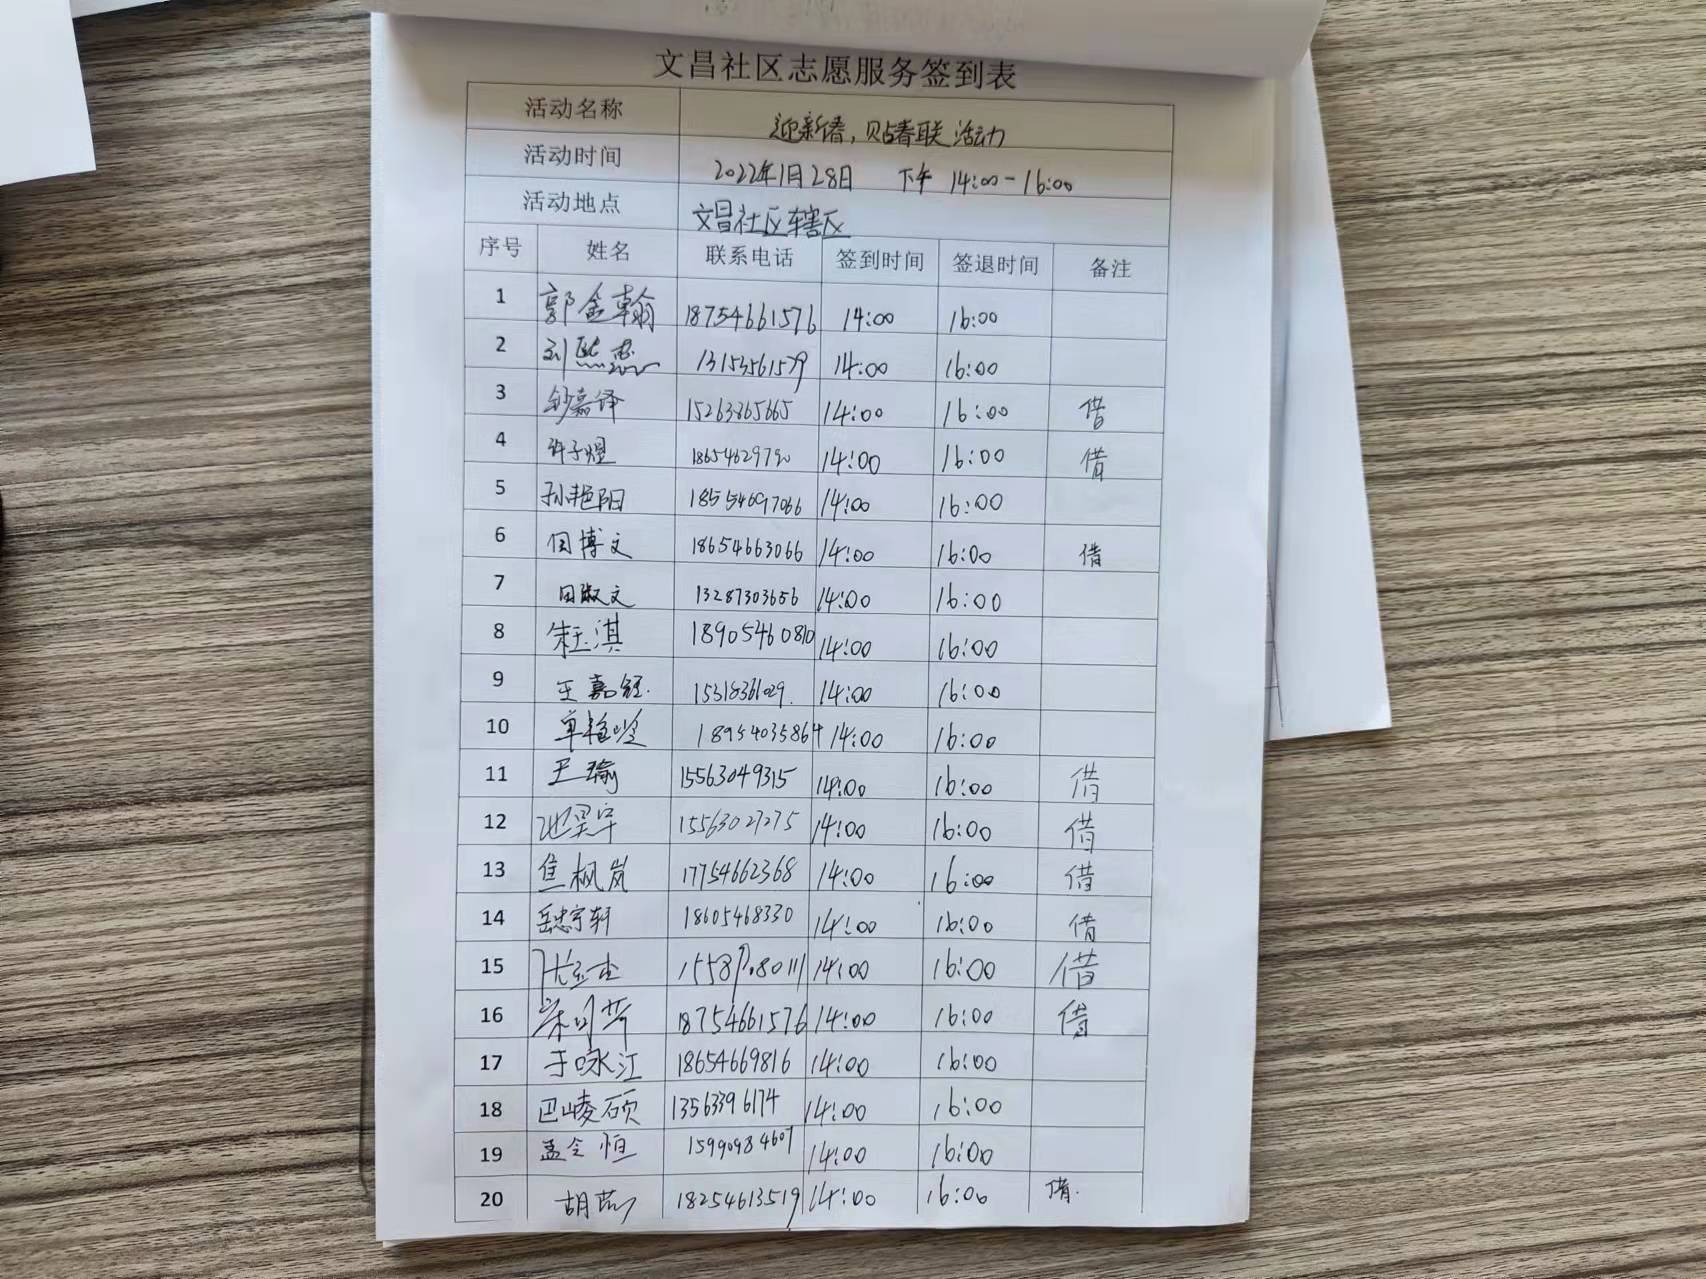 文昌社区志愿服务签到表
活动名称 迎新春，贴春联活动
活动时间 2022年1月28日 下午 14:00-16:00
活动地点 文昌社区辖区
序号 姓名 联系电话 签到时间 签退时间 备注
1 郭金翰 18754661576 14:00 16:00
2 刘熙 13153561579 14:00 16:00
3 嘉译 15263865665 14:00 16:00 借
4 许子煜 18654629790 14:00 16:00 借
5 孙艳阳 18554697066 14:00 16:00
6 田博文 18654663066 14:00 16:00 借
7 田淑文 13287303656 14:00 16:00
8 朱玉淇 18905460810 14:00 16:00
9 王嘉钰 15318361029 14:00 16:00
10 单 18954035864 14:00 16:00
11 王瑜 15563049315 14:00 16:00 借
12 池昊宇 15563027275 14:00 16:00 借
13 焦枫岚 17754662368 14:00 16:00 借
14 岳忠宇轩 18605468330 14:00 16:00 借
15 14:00 16:00 借
16 宋可 18754661576 14:00 16:00 借
17 于咏江 18654669816 14:00 16:00
18 巴崚硕 13563396174 14:00 16:00
19 孟令恒 15990984607 14:00 16:00
20 胡 18254613519 14:00 16:00 借